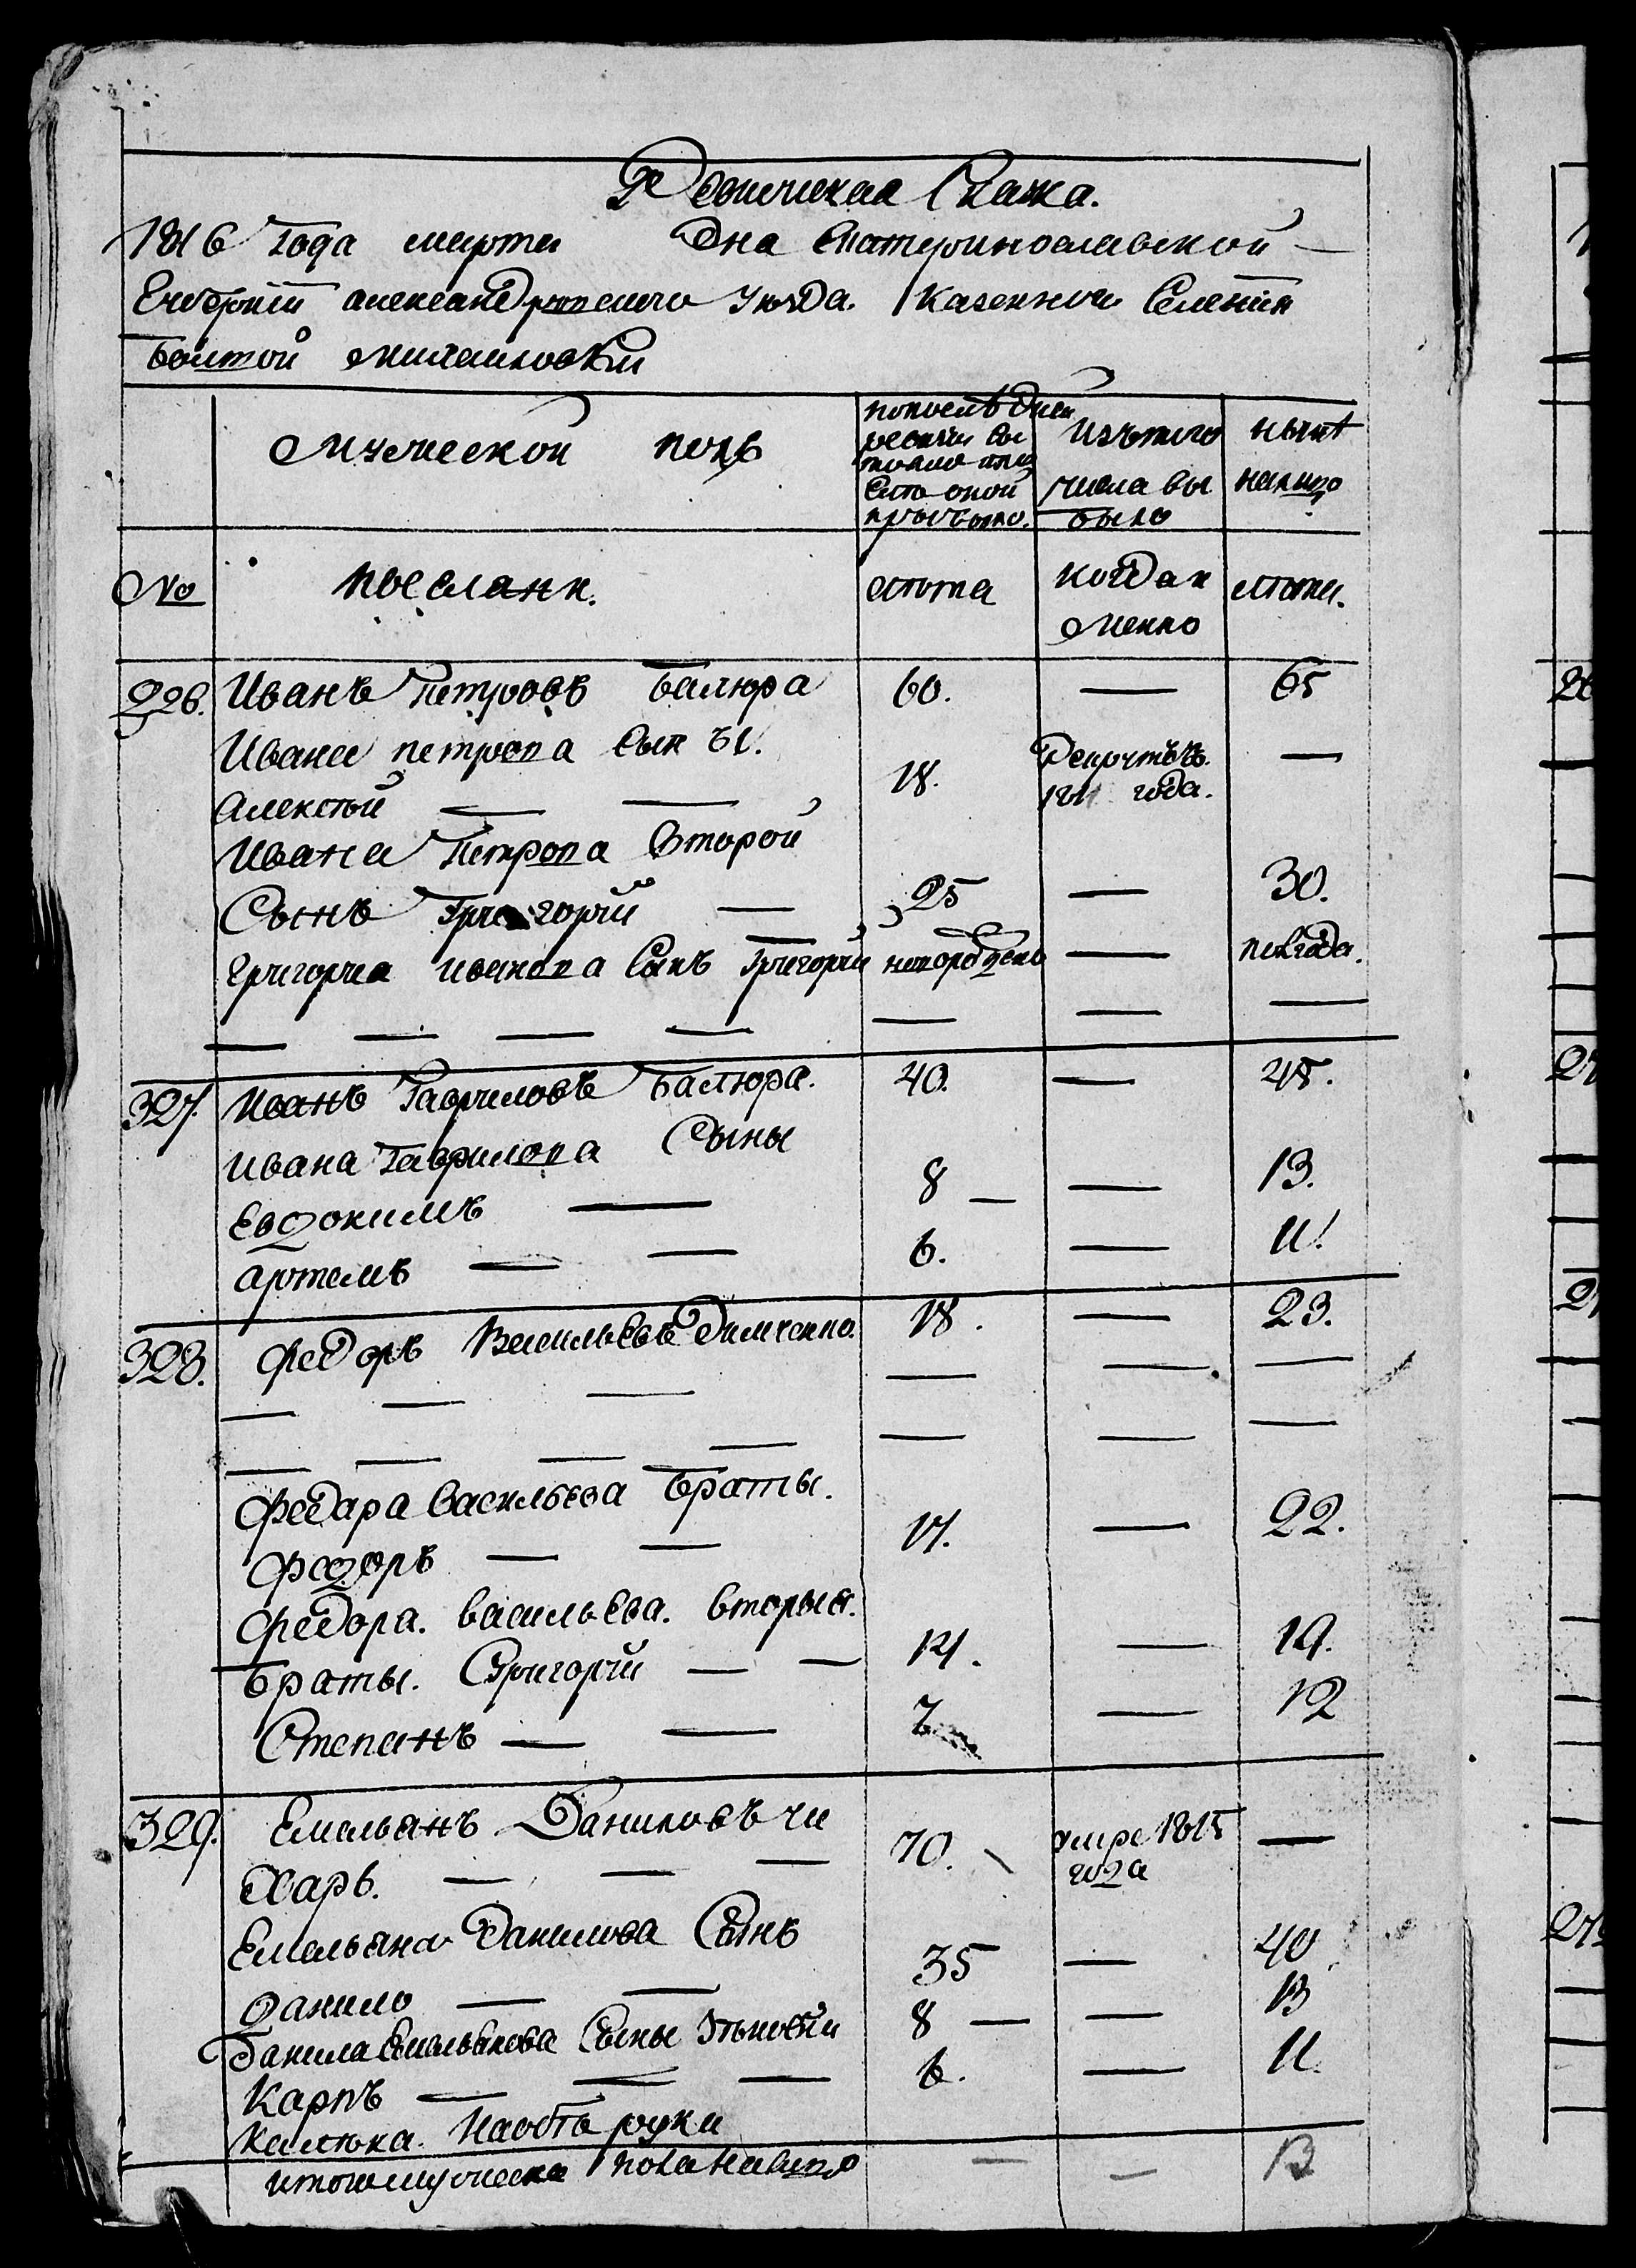 Ревижская Скаска.
1816 года марта дня Екатеринославской
Губернии александрейского уезда. Казенного Селения
Болтой Михаиловки
Мужеской полъ
по последней ревизии состояло или после оной прибыло.
Изъ того числа выбыло
ныне на лицо
№
поселяни.
лета
когда именно
лета.
226. Иванъ Петровъ Балюра 60. — 65
Ивана петрова сыны.
Алексей — — 18. рекрутъ въ 1811 года. —
Ивана Петрова второй
Сынъ Григорий — 25 — 30.
Григория иванова Сынъ Григорий новорожденъ — полгода.
— — — — — — —
327. Иванъ Гавриловъ Балюра. 40. — 45.
Ивана Гаврилова Сыны
Евдокимъ — 8 — — 13.
артемъ — — 6. — 11.
328. Федоръ Васильевъ Димченко. 18. — 23.
— — — — — —
— — — — — — —
Федара Васильева браты.
Федоръ — — 17. — 22.
Федора. васильева. вторыя.
браты. Григорий — — 14. — 19.
Степанъ — — 7 — 12
329. Емельянъ Даниловъ Чи
харь. — — — 70. умре 1815 года —
Емельяна Данилова Сынъ
данило — — 35 — 40
Данила Емельянова Сыны 8 — — 13
Карпъ — — — 6. — 11.
руки
итого мужеска пола на лицо — — 13